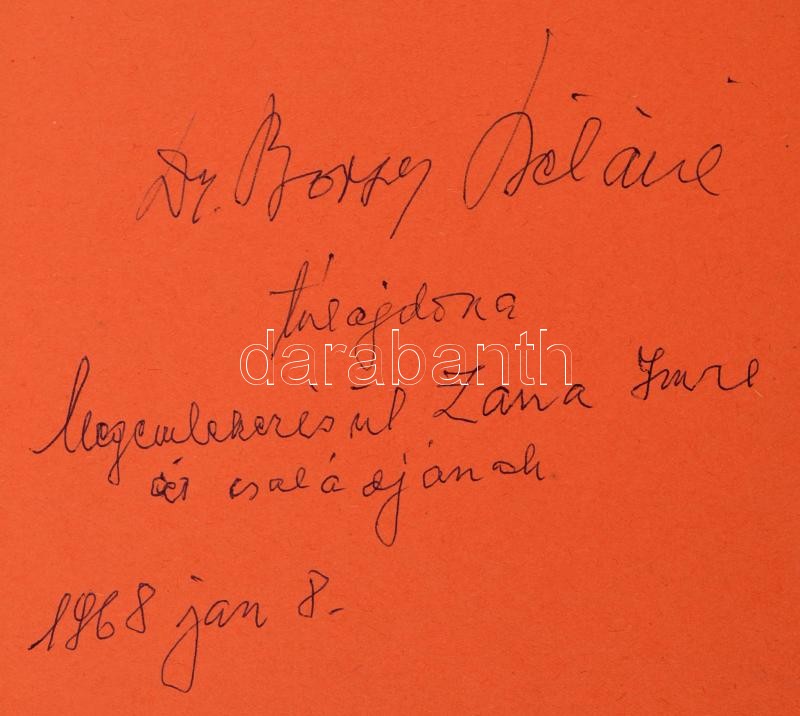 Dr. Borssy Béláné
tulajdona
darabanth
Megemlekezésül Zana Imre
és családjának
1968 jan 8.